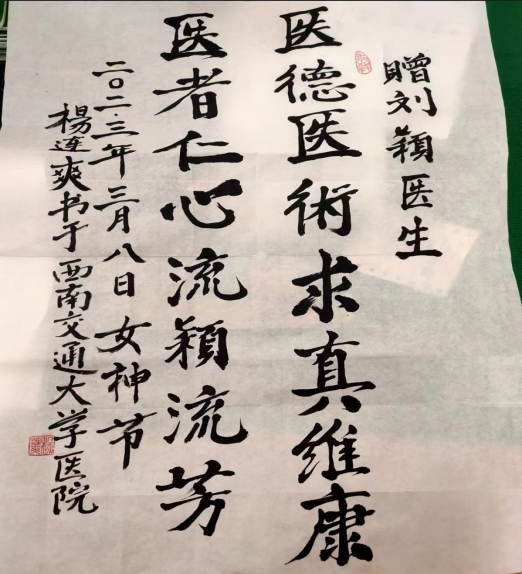 赠刘颖医生
医德医術求真维康
医者仁心流颖流芳
二〇二三年三月八日女神节
楊连爽书于西南交通大学医院